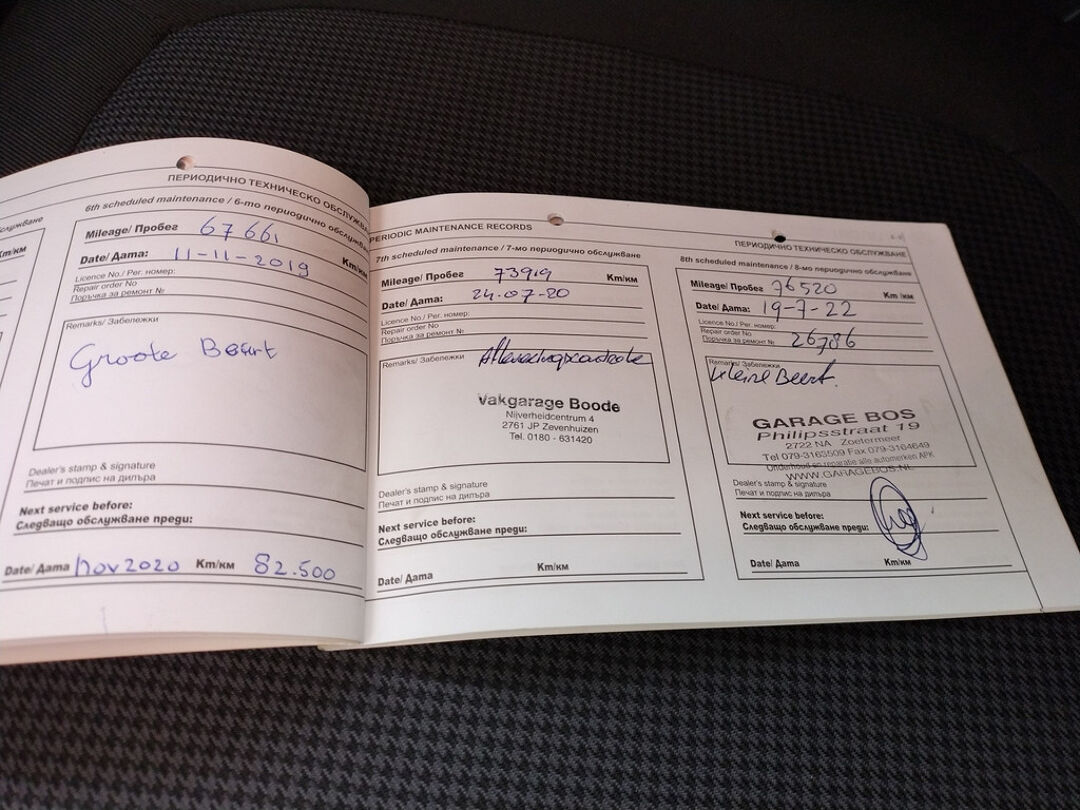 служване
km/км
ПЕРИОДИЧНО ТЕХНИЧЕСКО ОБСЛУЖВА
6th scheduled maintenance / 6-то периодично обслужване
Mileage/ Пробег 67661
Km/км
Date/ Дата: 11-11-2019
Licence No./ Рег. номер:
Repair order No
Поръчка за ремонт №
Remarks/ Забележки
Groote Beurt
Dealer's stamp & signature
Печат и подпис на дилъра
Next service before:
Следващо обслужване преди:
Date/ Дата nov 2020 Km/км 82.500
PERIODIC MAINTENANCE RECORDS
7th scheduled maintenance / 7-мо периодично обслужване
Mileage/ Пробег 73919 Km/км
Date/ Дата: 24-07-20
Licence No./ Рег. номер:
Repair order No
Поръчка за ремонт №
Remarks/ Забележки
Vakgarage Boode
Nijverheidcentrum 4
2761 JP Zevenhuizen
Tel. 0180 - 631420
Dealer's stamp & signature
Печат и подпис на дилъра
Next service before:
Следващо обслужване преди:
Date/ Дата Km/км
ПЕРИОДИЧНО ТЕХНИЧЕСКО ОБСЛУЖВАНЕ
8th scheduled maintenance / 8-мо периодично обслужване
Mileage/ Пробег 76520 Km/км
Date/ Дата: 19-7-22
Licence No./ Рег. номер:
Repair order No
Поръчка за ремонт № 26786
Remarks/ Забележки
kleine Beert.
GARAGE BOS
Philipsstraat 19
2722 NA Zoetermeer
Tel 079-3163509 Fax 079-3164649
Onderhoud en reparatie alle automerken APK
WWW.GARAGEBOS.NL
Dealer's stamp & signature
Печат и подпис на дилъра
Next service before:
Следващо обслужване преди:
Date/ Дата Km/км